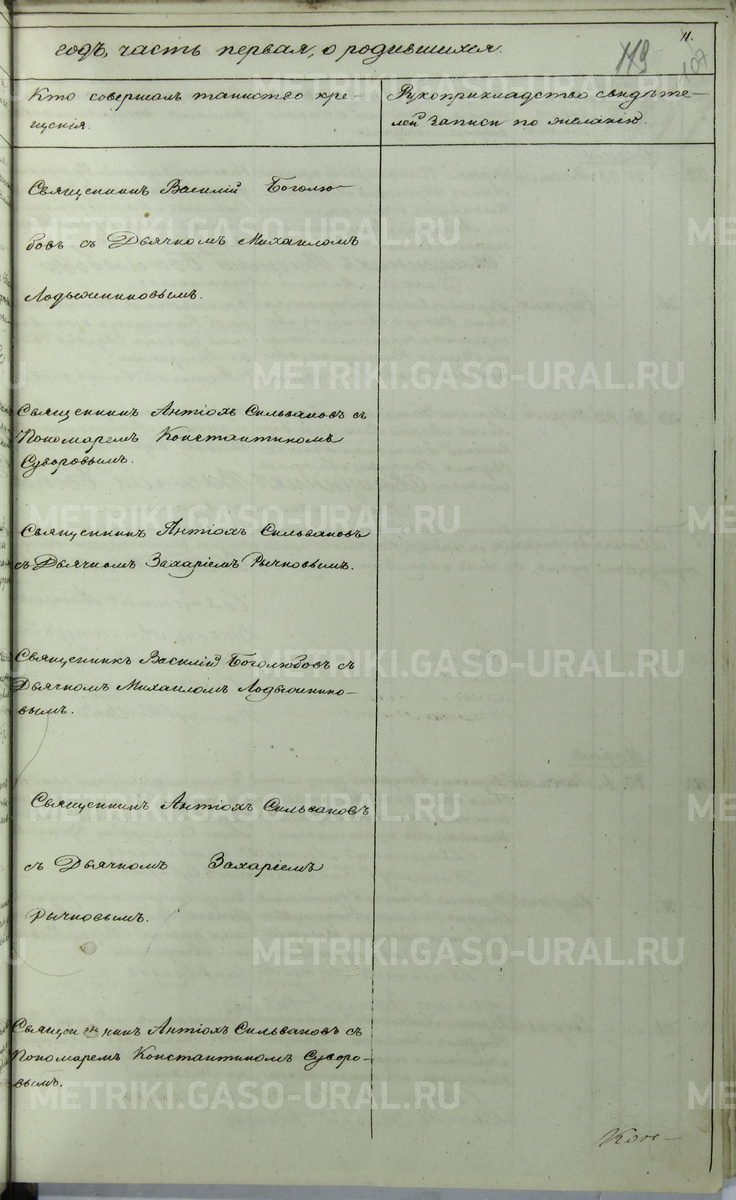 11.
119
107
годъ, часть первая, о родившихся.
Кто совершалъ таинство кре-
щенія.
Рукоприкладство свидѣте-
лей записи по желанію.
Священникъ Василій Боголю-
бовъ съ Дьячкомъ Михаиломъ
Лодыжниковымъ.
Священникъ Антіохъ Сильвановъ съ
Пономаремъ Константиномъ
Суворовымъ.
Священникъ Антіохъ Сильвановъ
съ Дьячкомъ Захаріемъ Рычковымъ.
Священникъ Василій Боголюбовъ съ
Дьячкомъ Михаиломъ Лодыжнико-
вымъ.
Священникъ Антіохъ Сильвановъ
съ Дьячкомъ Захаріемъ
Рычковымъ.
Священникъ Антіохъ Сильвановъ съ
Пономаремъ Константиномъ Суворо-
вымъ.
METRIKI.GASO-URAL.RU